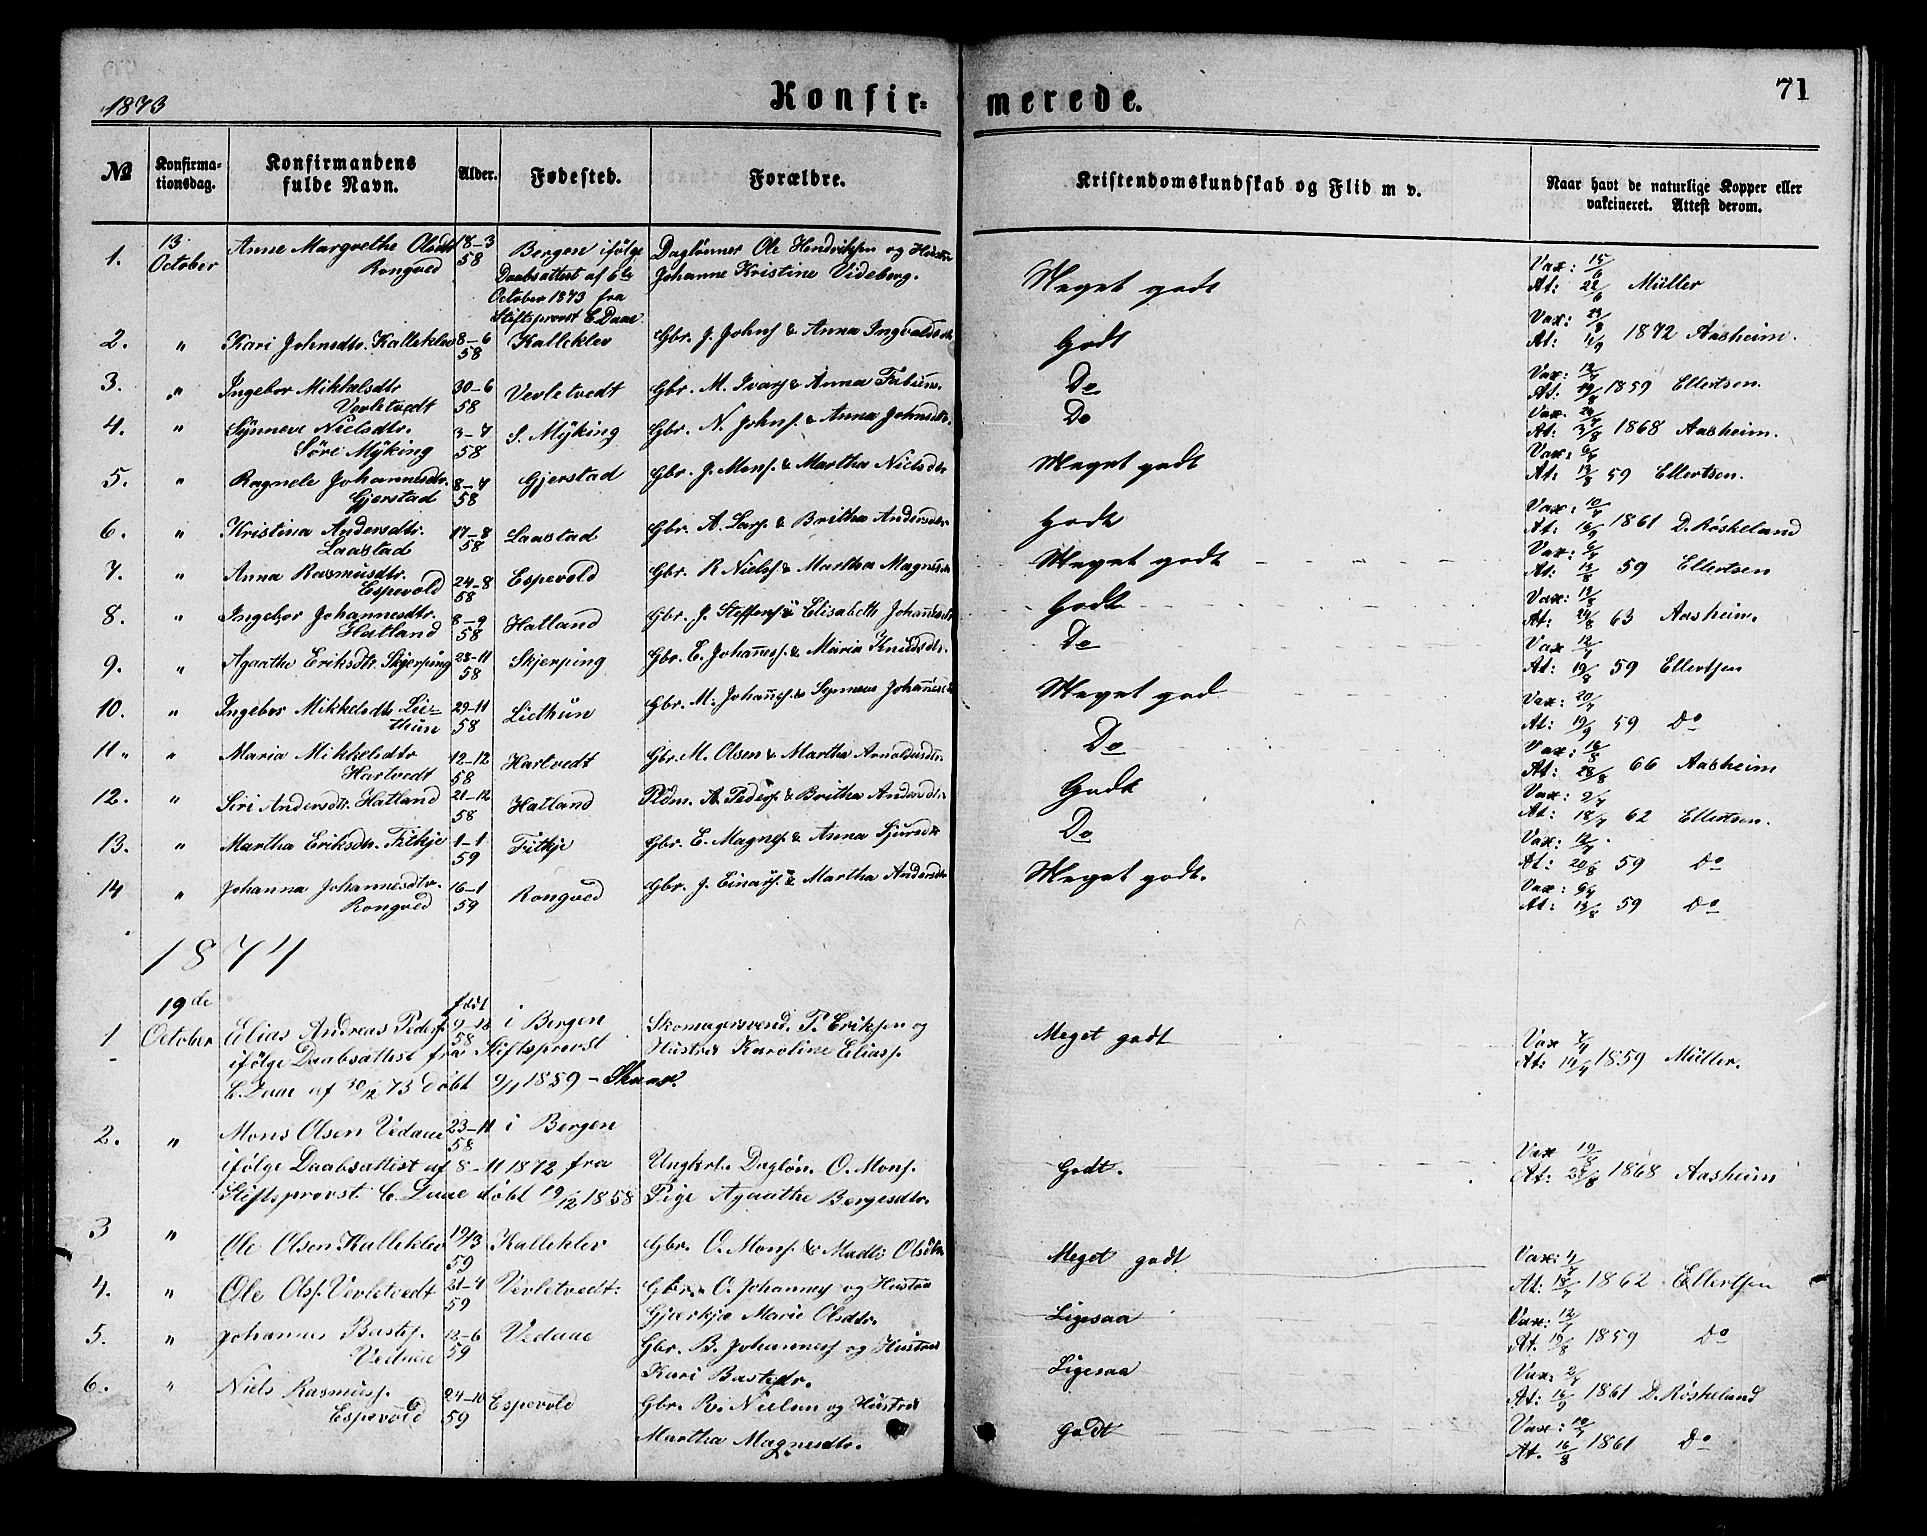 1873 Konfirmerede. 71
№ Konfirmationsdag. Konfirmandens fulde Navn. Alder. Fødested. Forældre. Kristendomskundskab og Flid m v. Naar havt de naturlige Kopper eller vakcineret. Attest derom.
1. 13 October Anne Margrethe Olsdtr Rongved 18-3 58 Bergen ifølge Daabsattest af 6te October 1873 fra Stiftsprovst C. Daae Daglønner Ole Hendriksen og Hustru Johanne Kristine Videberg. Meget godt Vax: 15/6 At: 22/6 Müller
2. " Kari Johnsdtr. Kalleklev 8-6 58 Kalleklev Gbr. J. Johns. & Anna Ingvaldsdtr Godt Vax: At: 1872 Aasheim.
3. " Ingebor Mikkelsdtr Vevletvedt 30-6 58 Vevletvedt Gbr. M. Ivars. & Anna Do Vax: At: 19/8 1859 Ellertsen.
4. " Synneve Nielsdtr. Söre Myking 3-7 58 S. Myking Gbr. N. Johns. & Anna Johnsdtr. Do Vax. At: 1868 Aasheim.
5. " Ragnele Johannesdtr. Gjerstad 8-7 58 Gjerstad Gbr. J. Mons. & Martha Nielsdtr Meget godt Vax: 6/7 At: 13/8 59 Ellertsen.
6. " Kristina Andersdtr. Laastad 17-8 58 Laastad Gbr. A. Lars. & Britha Andersdtr Godt Vax: 10/7 At: 16/9 1861 D. Røskeland
7. " Anna Rasmusdtr. Espevold 24-8 58 Espevold Gbr. R Niels. & Martha Magnesdtr Meget godt Vax: 6/7 At: 13/8 59 Ellertsen
8. " Ingebor Johannesdtr. Hatland 8-9 58 Hatland Gbr. J. Steffens. & Elisabeth Johannesdtr Godt Vax: At: 24/8 63 Aasheim.
9. " Agaathe Eriksdtr. Skjerping 28-11 58 Skjerping Gbr. E. Johannes. & Maria Knudsdtr. Do Vax 12/7 At: 19/8 59 Ellertsen
10. " Ingebor Mikkelsdtr Liethun 29-11 58 Liethun Gbr. M. Johannes. & Synneve Johannesdtr Meget god Vax: 20/7 At: 19/9 59 Do
11. " Maria Mikkelsdtr Hartvedt 12-12 58 Hartvedt Gbr. M. Olsen & Martha Arnoldsdtr. Do Vax: 16/8 At: 28/8 66 Aasheim
12. " Siri Andersdtr. Hatland 21-12 58 Hatland Pldm. A. Peders. & Britha Andersdtr. Godt Vax: 9/7 At: 18/7 62 Ellertsen.
13. " Martha Eriksdtr. Fitkje 1-1 59 Fitkje Gbr. E. Magnes. & Anna Sjursdtr Do Vax: 12/7 At: 20/8 59 Do
14 " Johanna Johannesdtr. Rongved 16-1 59 Rongved Gbr. J. Einars. & Martha Andersdtr Meget godt. Vax: 6/7 At: 13/8 59 Do
1874
1 19de October Elias Andreas Peders. født 58 i Bergen Skomagersvend. P. Eriksen og Hustru Karoline Elias. Meget godt Vax At: 1859 Müller.
ifølge Daabsattest fra Stiftsprovst
C. Daae af 30/12 73 døbt 9/1 1859 -
2. " Mons Olsen Vedaae 23-11 58 i Bergen Ungkrl. Dagløn. O. Mons. Godt. Vax 19/8 At: 1868 Aasheim
ifölge Daabsattest af 8-11 1872 fra
Stiftsprovst C. Daae døbt 19/12 1858 Pige Agaathe Bergesdtr.
3 " Ole Olsen Kalleklev 19/3 59 Kalleklev Gbr. O. Mons. & Madli Olsdtr Meget godt Vax: At: 18/7 1862 Ellertsen
4. " Ole Ols. Vevletvedt 21-4 59 Vevletvedt. Gbr. O. Johannes og Hustru Gjærtkje Marie Olsdtr. Ligesaa Vax: 12/7 At. 19/8 1859 Do
5. " Johannes Bastes. Vedaae 12-6 59 Vedaae Gbr. B. Johannes og Hustru Kari Bastedtr. Ligesaa Vax: At: 16/9 1861 D. Røskeland
6. " Niels Rasmus. Espevold 24-10 59 Espevold Gbr. R. Nielsen og Hustru Martha Magnesdtr. Godt Vax: 10/7 At. 16/8 1861 Do